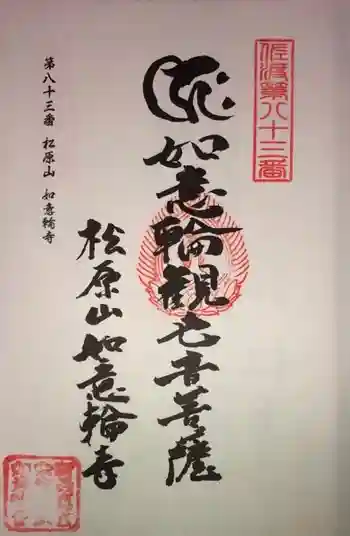 佐渡第八十三番
如意輪観世音菩薩
松原山如意輪寺
第八十三番 松原山 如意輪寺